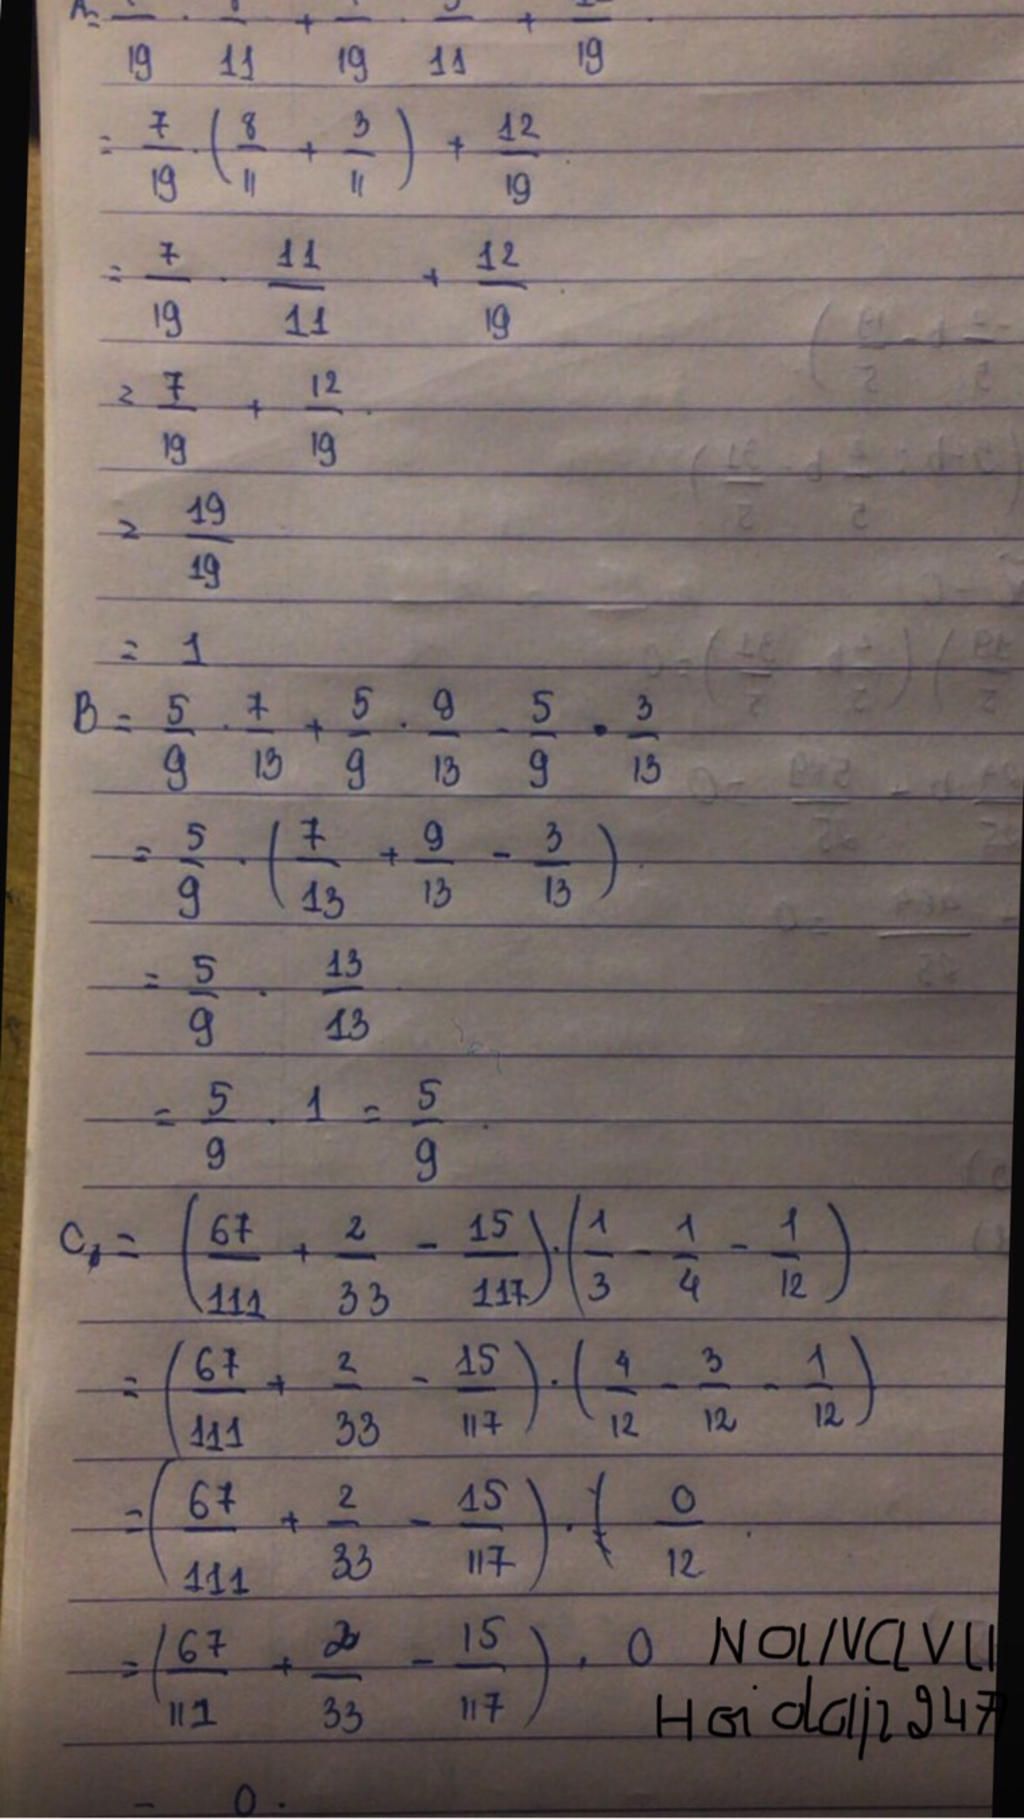 A = 7/19 . 8/11 + 7/19 . 3/11 + 12/19
= 7/19 . (8/11 + 3/11) + 12/19
= 7/19 . 11/11 + 12/19
= 7/19 + 12/19
= 19/19
= 1
B = 5/9 . 7/13 + 5/9 . 9/13 - 5/9 . 3/13
= 5/9 . (7/13 + 9/13 - 3/13)
= 5/9 . 13/13
= 5/9 . 1 = 5/9
C = (67/111 + 2/33 - 15/117) . (1/3 - 1/4 - 1/12)
= (67/111 + 2/33 - 15/117) . (4/12 - 3/12 - 1/12)
= (67/111 + 2/33 - 15/117) . 0/12
= (67/111 + 2/33 - 15/117) . 0
= 0.